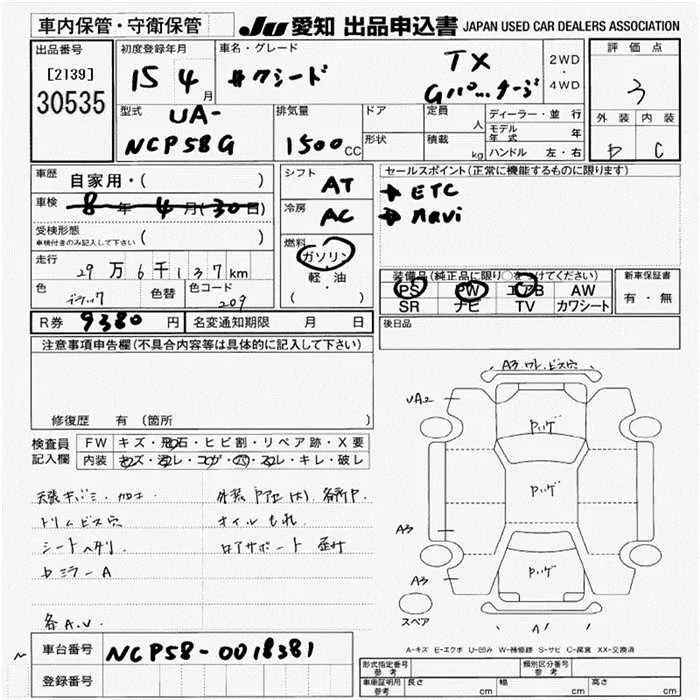 車内保管・守衛保管 JU 愛知 出品申込書 JAPAN USED CAR DEALERS ASSOCIATION
出品番号 初度登録年月 車名・グレード 評価点
[2139] 15 4月 サクシード TX 2WD・4WD 3
30535 Gパッケージ
外装 内装
型式 UA- 排気量 ドア 定員 人 ディーラー・並行
モデル年式 年
NCP58G 1500cc 形状 積載 kg ハンドル 左・右 D C
車歴 自家用・( ) シフト AT セールスポイント(正常に機能するものに限ります)
車検 8年4月(30日) 冷房 AC → ETC
→ navi
受検形態
車検付きのみ記入して下さい ( )
燃料 ガソリン 軽・油 ( ・ )
走行 29万6千137km
色 ブラック 色替 色コード 209
装備品(純正品に限り○をつけてください) 新車保証書
PS PW エアB AW 有・無
SR ナビ TV カワシート
R券 9380円 名変通知期限 月 日 後日品
注意事項申告欄(不具合内容等は具体的に記入して下さい)
修復歴 有 (箇所 )
検査員記入欄 FW キズ・飛石・ヒビ割・リペア跡・X要
内装 キズ・汚レ・コゲ・穴・スレ・キレ・破レ
トリムビス穴 オイルもれ
シートヘタリ ロアサポート
ミラーA
各A.U.
A3 ワレ ビス穴
UA2
Pいゲ
Pいゲ
A3
Pいゲ
A3
スペア
A1
A-キズ E-エクボ U-凹み W-補修跡 S-サビ C-腐食 XX-交換済
車台番号 NCP58-0018381
登録番号
形式指定番号 参考 類別区分番号 参考
車庫証明用 参考 長さ cm 幅 cm 高さ cm